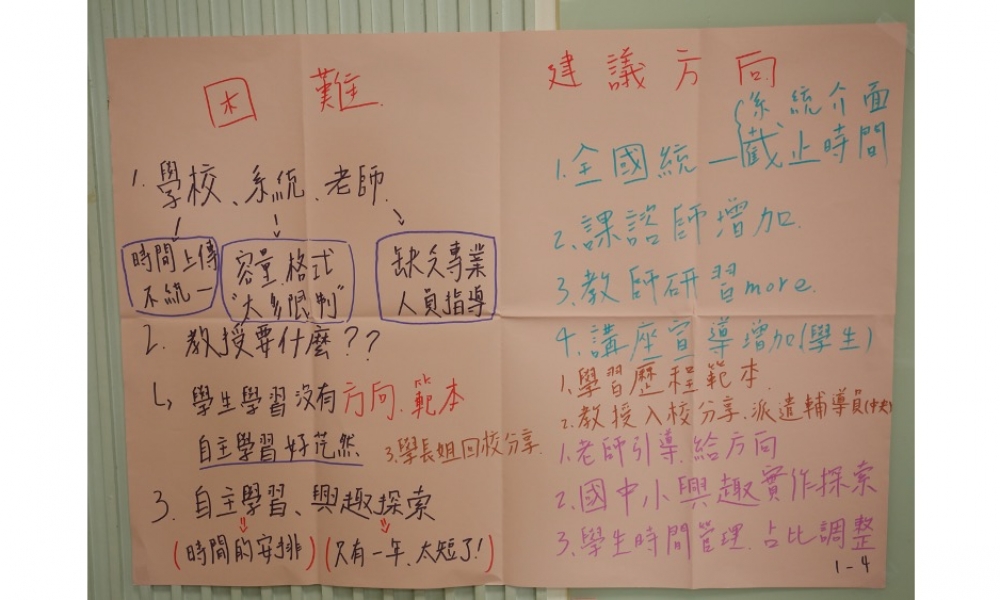 困難
1. 學校、系統、老師
時間上傳
不統一
容量.格式
"太多限制"
缺乏專業
人員指導
2. 教授要什麼??
學生學習沒有方向.範本
自主學習好茫然
3.學長姐回校分享
3. 自主學習、興趣探索
(時間的安排)
(只有一年、太短了!)
建議方向
1.全國統一
系統介面
截止時間
2.課諮師增加.
3.教師研習more.
4.講座宣導增加(學生)
1.學習歷程範本.
2.教授入校分享.派遣輔導員(中央)
1.老師引導.給方向
2.國中小興趣實作探索
3.學生時間管理.占比調整
1-4